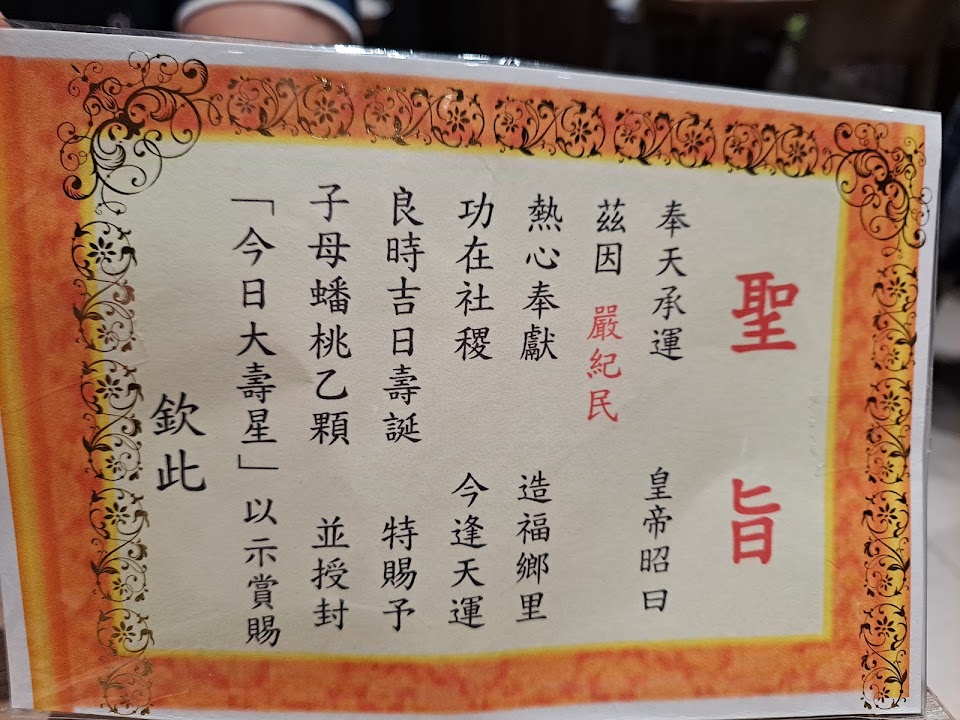 聖旨
奉天承運 皇帝昭曰
茲因 嚴紀民
熱心奉獻 造福鄉里
功在社稷 今逢天運
良時吉日壽誕 特賜予
子母蟠桃乙顆 並授封
「今日大壽星」以示賞賜
欽此